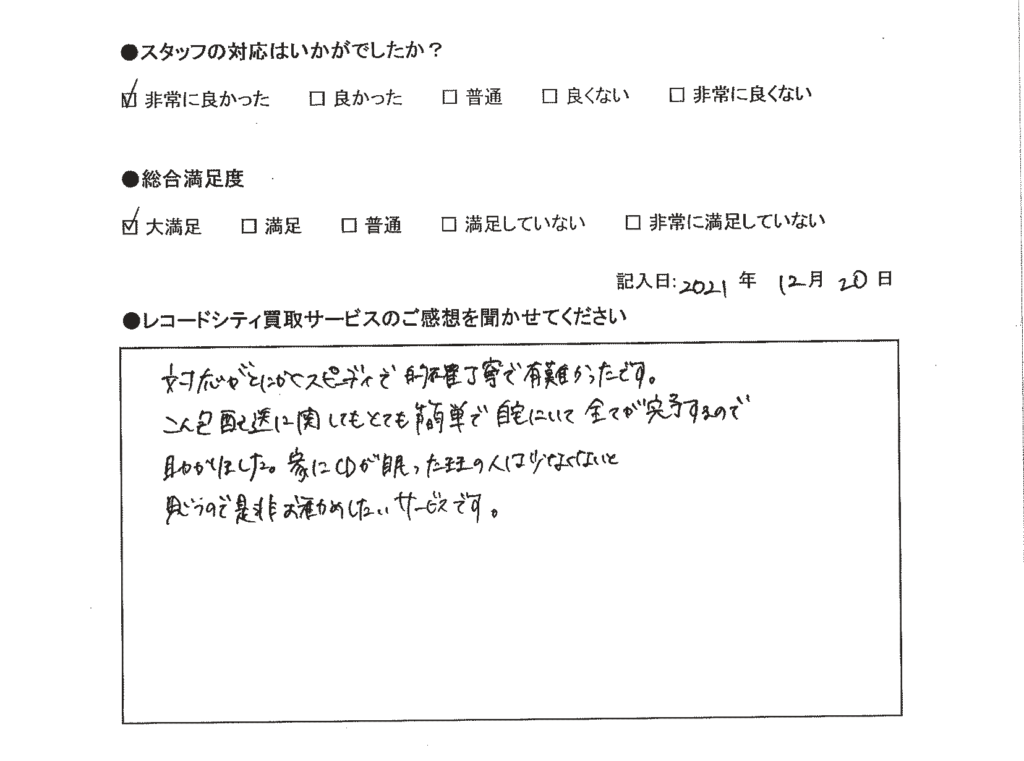 ●スタッフの対応はいかがでしたか？
☑ 非常に良かった □ 良かった □ 普通 □ 良くない □ 非常に良くない
●総合満足度
☑ 大満足 □ 満足 □ 普通 □ 満足していない □ 非常に満足していない
記入日: 2021 年 12月 20 日
●レコードシティ買取サービスのご感想を聞かせてください
対応がとにかくスピーディで 的確丁寧で有難かったです。
こん包配送に関してもとても簡単で 自宅にいて 全てが完了するので
助かりました。家にCDが眠ったままの人は少なくないと
思うので是非お勧めしたいサービスです。